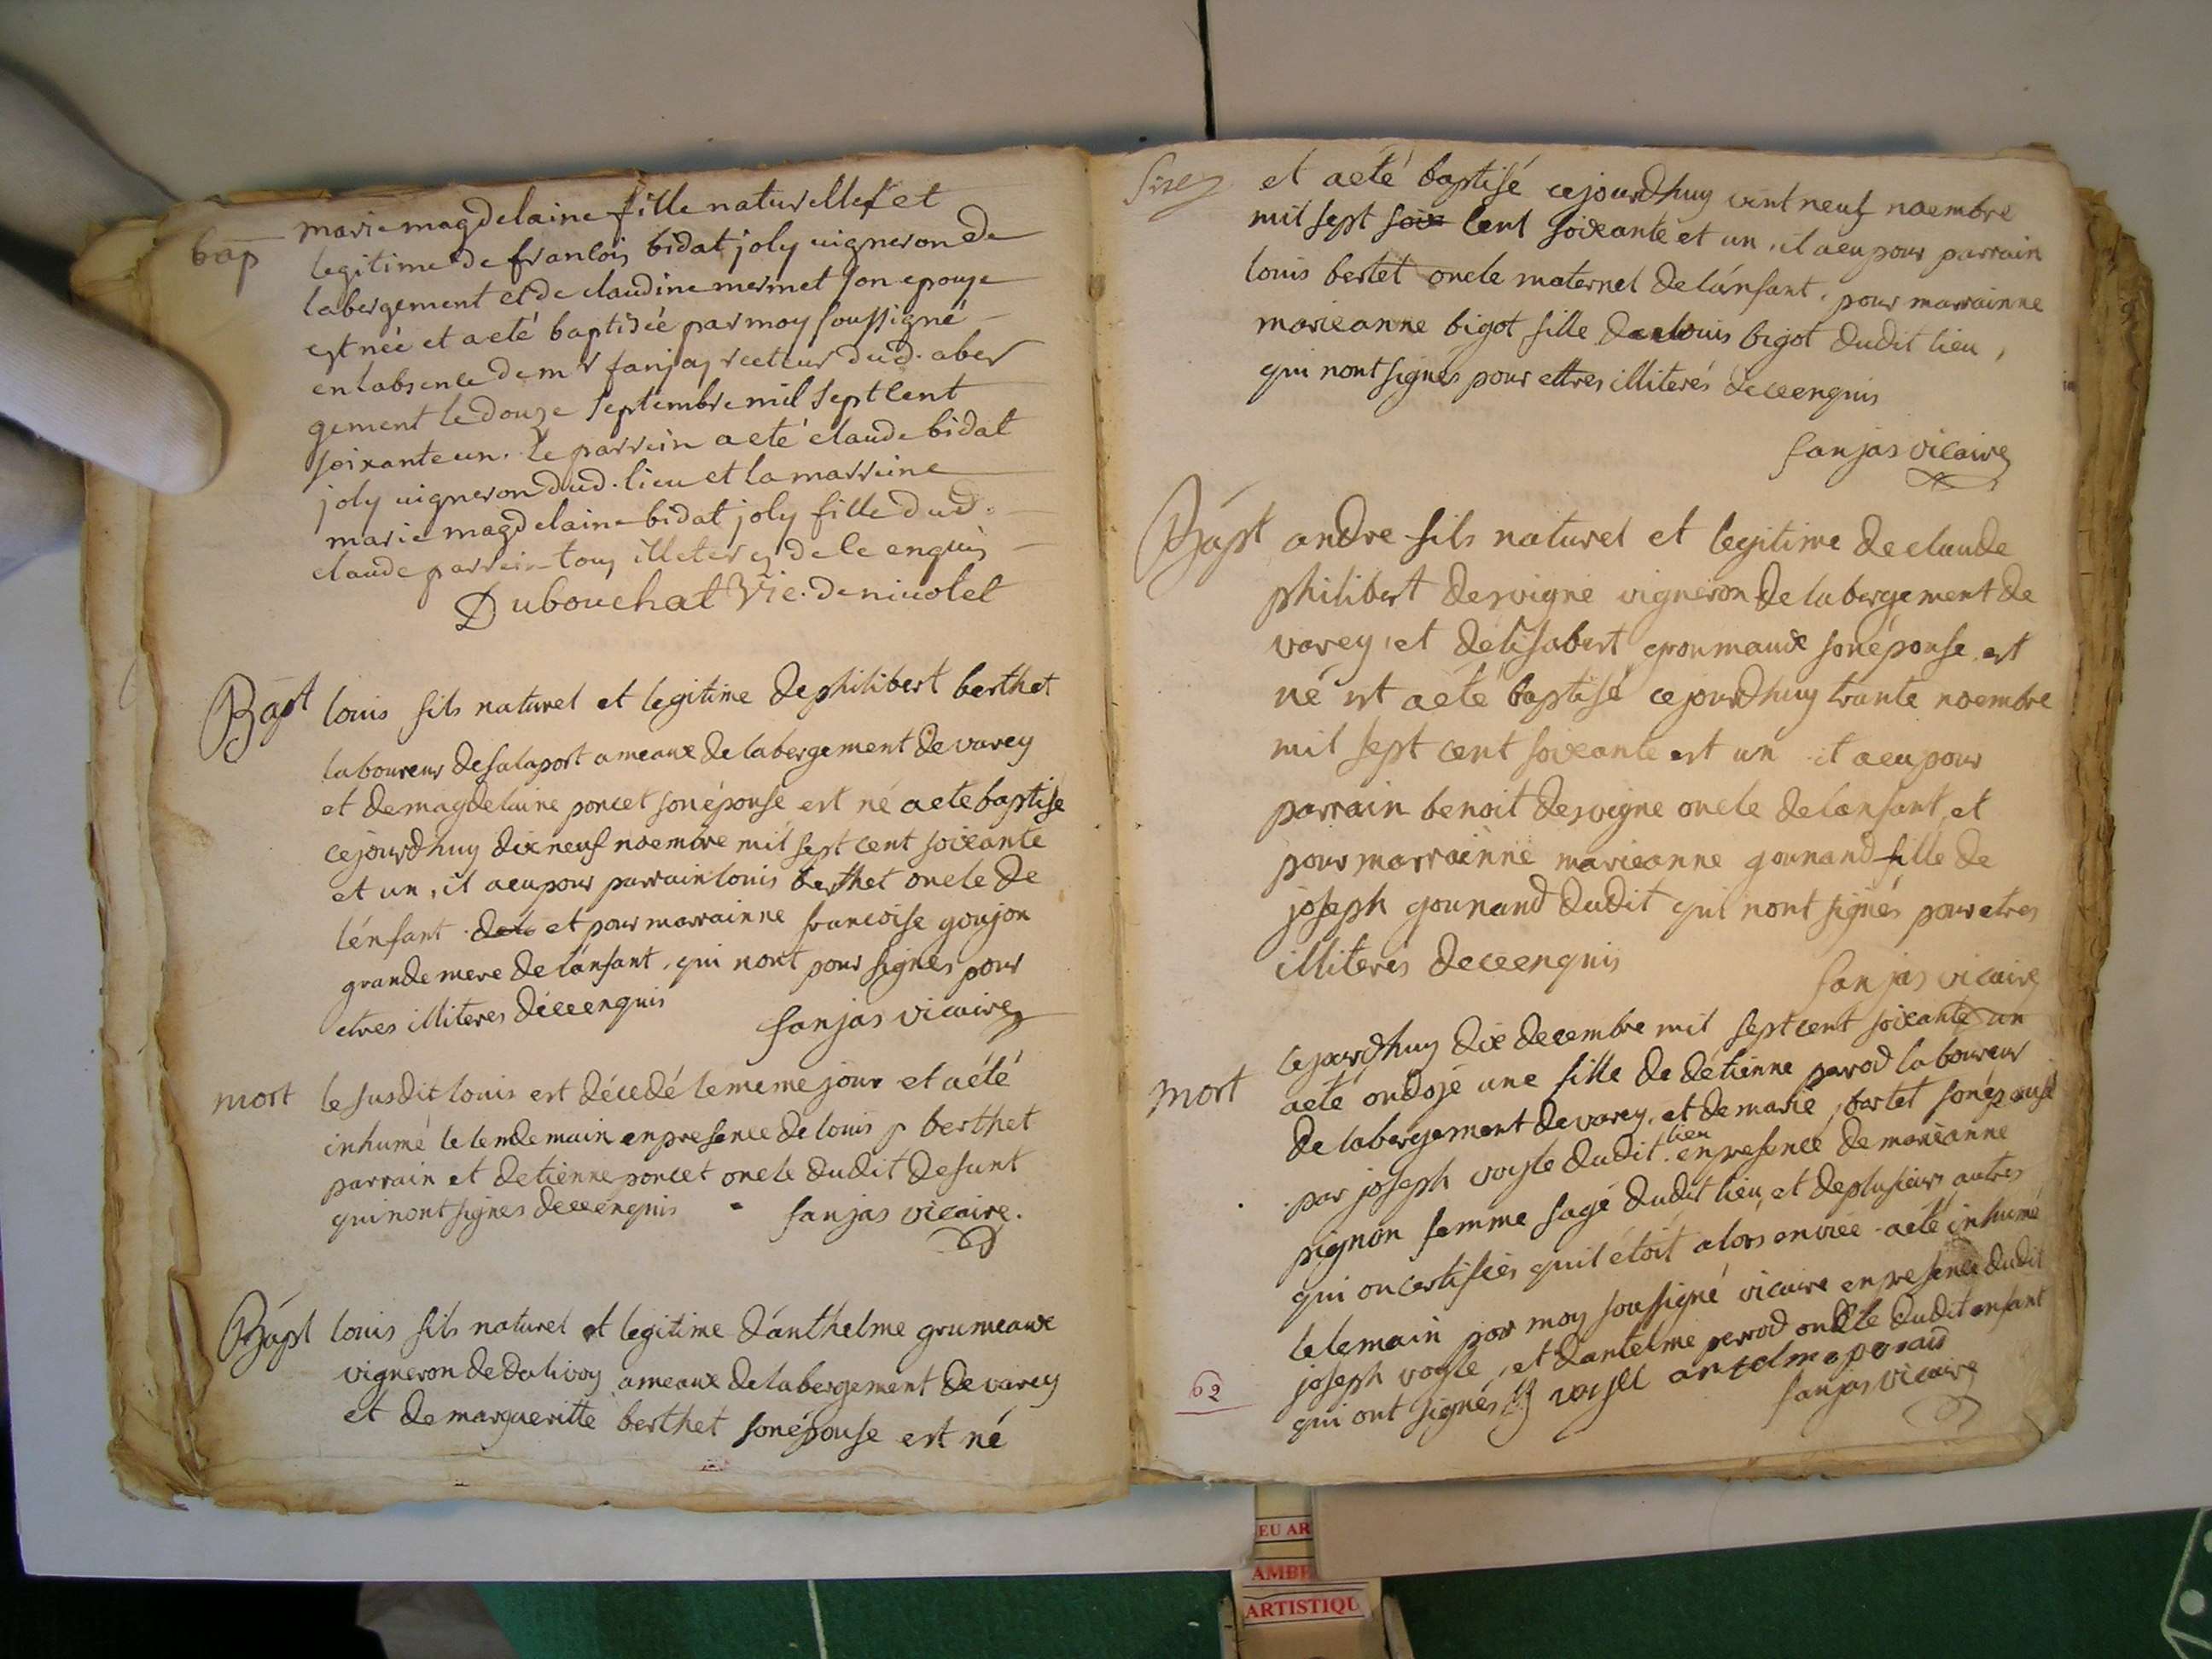 bap
marie magdelaine fille naturelle et
legitime de francois bidat joly uigneron de
labergement et de claudine mermet son epouse
est née et a eté baptisée par moy soussigné
en labsence de mr fanjas recteur dud. aber
gement le douze septembre mil sept cent
soixante un. le parrein a eté claude bidat
joly uigneron dud. lieu et la marreine
marie magdelaine bidat joly fille dud.
claude parrein tous illeteres de ce enquis
Dubouchat Vic. de niuolet
Bapt
louis fils naturel et legitime de philibert berthet
laboureur de salaport ameaux de labergement de varey
et de magdelaine poncet son épouse est né a ete baptise
cejourdhuy dix neuf noembre mil sept cent soixante
et un, il a eu pour parrain louis berthet oncle de
lénfant dela et pour marrainne francoise goujon
grande mere de lánfant, qui nont pour signes pour
etres illiteres deceenquis
fanjas vicaire
mort
le susdit louis est décedé le meme jour et a été
inhumé le lendemain en presence de louis p berthet
parrain et detienne poncet oncle dudit defunt
qui nont signes deceenquis
fanjas vicaire.
Bapt
louis fils naturel et legitime dánthelme grumeaux
vigneron de dalivoy ameaux de labergement de varey
et de margueritte berthet son épouse est né
et a eté baptisé cejourdhuy vint neuf noembre
mil sept soix cent soixante et un, il a eu pour parrain
louis bertet oncle maternel de lánfant, pour marrainne
marieanne bigot fille de louis bigot dudit lieu,
qui nont signés pour ettres illiterés deceenquis
fanjas vicaire
Bapt
andre fils naturel et legitime de claude
philibert desvigne vigneron de labergement de
varey, et delisabert groumaux son épouse est
né et a eté baptisé cejourdhuy trante noembre
mil sept cent soixante et un il a eu pour
parrain benoit desvigne oncle de lanfant, et
pour marrainne marieanne gounand fille de
joseph gounand dudit qui nont signés pour etres
illiteres deceenquis
fanjas vicaire
mort
cejourdhuy dix decembre mil sept cent soixante un
a eté ondojé une fille de détienne parod laboureur
de labergement de varey, et de marie bartet son épouse
par joseph voysle dudit lieu en presence de marieanne
pignon femme sage dudit lieu, et de plusieurs autres
qui on certifiés quil étoit alors en viee a eté inhumé
le lemain par moy soussigné vicaire en presence dudit
joseph voysle, et dantelme perrod oncle dudit enfant
qui ont signés voysle antelme perad
fanjas vicaire
62
EU AR
AMBE
ARTISTIQU